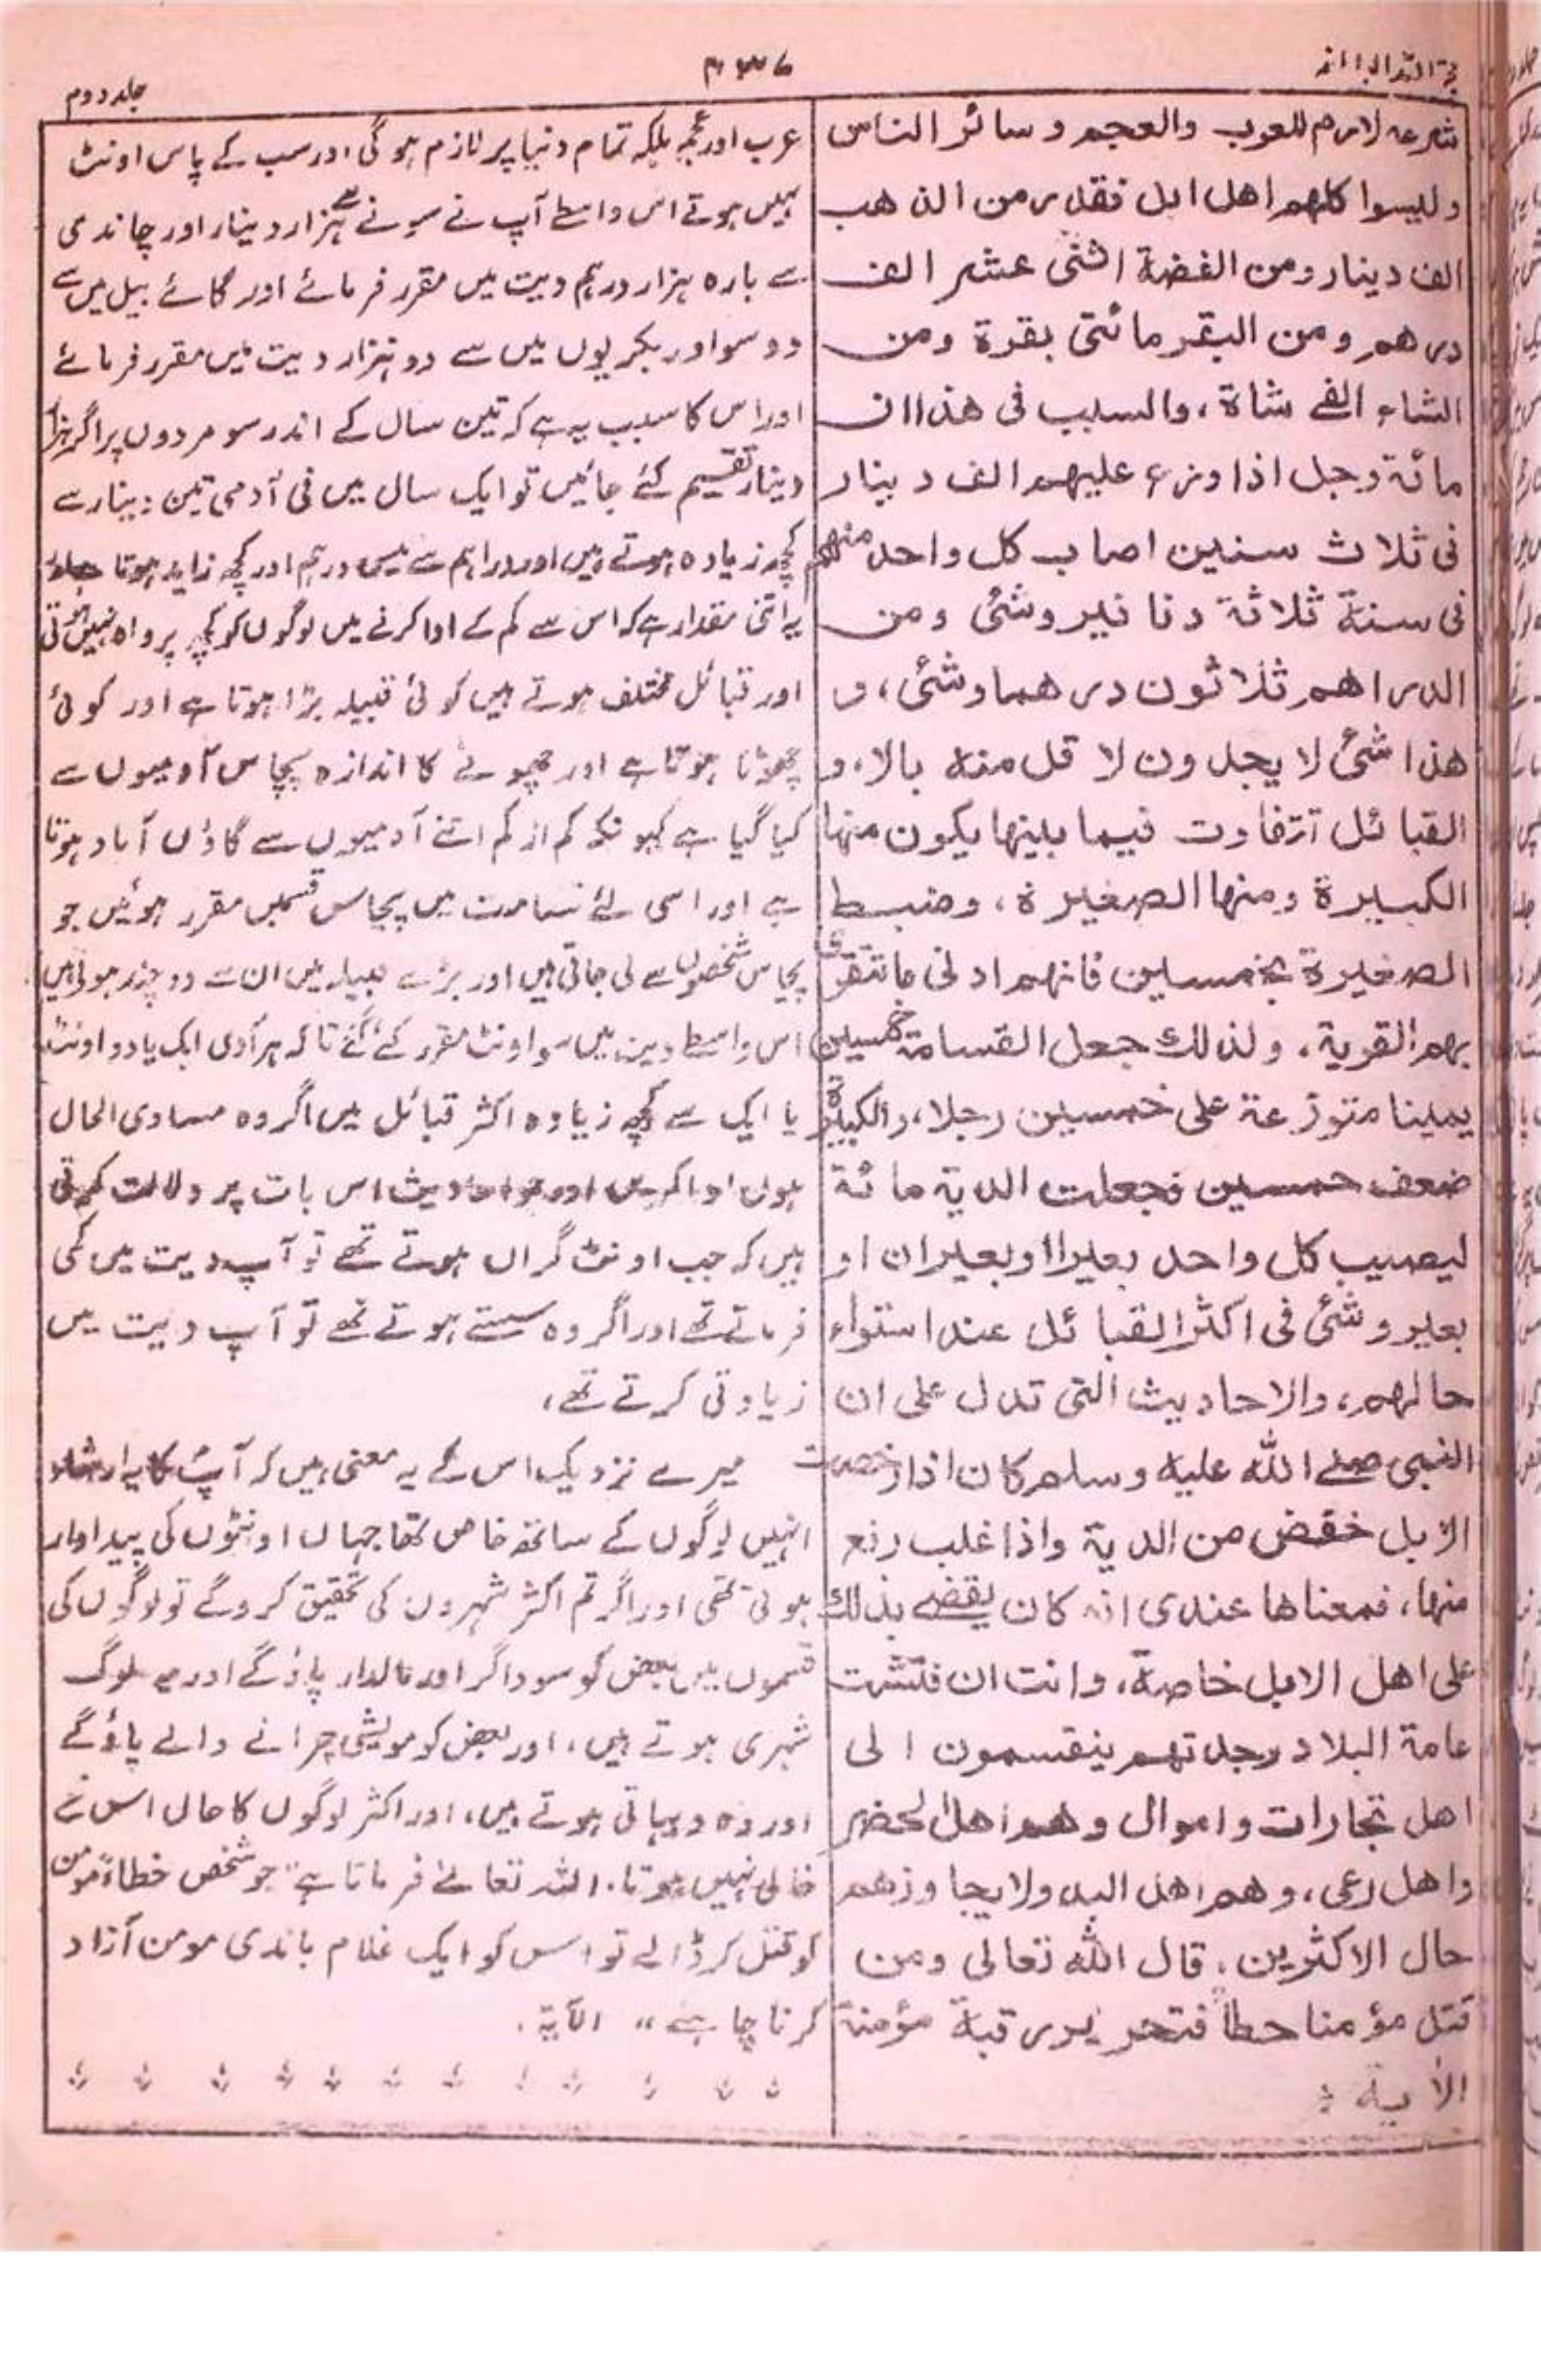 حجۃ اللہ البالغہ
۴۳۷
جلد دوم
شرعہ لازم للعرب والعجم و سائر الناس
وليسوا كلهم اهل ابل فقدر من الذهب
الف دينار ومن الفضة اثنى عشر الف
درهم ومن البقر مائتى بقرة ومن
الشاء الفے شاة، والسبب فى هذا ان
مائة رجل اذا وزع عليهم الف دينار
فى ثلاث سنين اصاب كل واحد منهم
فى سنة ثلاثة دنانير وشئى ومن
الدراهم ثلاثون درهما وشئى، و
هذا شئى لا يجدون لا قل منه بالا، و
القبائل تتفاوت فيما بينها يكون منها
الكبيرة ومنها الصغيرة، وضبط
الصغيرة بخمسين فانهم ادنى ما تتقرى
بهم القرية، ولذلك جعل القسامة خمسين
يمينا متوزعة على خمسين رجلا، والكبيرة
ضعف خمسين فجعلت الدية مائة
ليصيب كل واحد بعيرا او بعيران او
بعير وشئى فى اكثر القبائل عند استواء
حالهم، والاحاديث التى تدل على ان
النبى صلے الله عليه وسلم كان اذا رخصت
الابل خفض من الدية واذا غلب رفع
منها، فمعناها عندى انه كان يقضے بذلك
على اهل الابل خاصة، وانت ان فتشت
عامة البلاد وجدتهم ينقسمون الى
اهل تجارات واموال وهم اهل الحضر
واهل رعى، وهم اهل البدو ولا يجاوزهم
حال الاكثرين، قال الله تعالى ومن
قتل مؤمنا خطأ فتحرير رقبة مؤمنة
الأية :
عرب اور عجم بلکہ تمام دنیا پر لازم ہو گی اور سب کے پاس اونٹ
نہیں ہوتے اس واسطے آپ نے سونے سے ہزار دینار اور چاندی
سے بارہ ہزار درہم دیت میں مقرر فرمائے اور گائے بیل میں سے
دو سو اور بکریوں میں سے دو ہزار دیت میں مقرر فرمائے
اور اس کا سبب یہ ہے کہ تین سال کے اندر سو مردوں پر اگر ہزار
دینار تقسیم کئے جائیں تو ایک سال میں فی آدمی تین دینار سے
کچھ زیادہ ہوتے ہیں اور دراہم سے تیس درہم اور کچھ زاید ہوتا ہے اور
یہ اتنی مقدار ہے کہ اس سے کم کے ادا کرنے میں لوگوں کو کچھ پرواہ نہیں ہوتی
اور قبائل مختلف ہوتے ہیں کوئی قبیلہ بڑا ہوتا ہے اور کوئی
چھوٹا ہوتا ہے اور چھوٹے کا اندازہ پچاس آدمیوں سے
کیا گیا ہے کیونکہ کم از کم اتنے آدمیوں سے گاؤں آباد ہوتا
ہے اور اسی لئے قسامت میں پچاس قسمیں مقرر ہوئیں جو
پچاس شخصوں سے لی جاتی ہیں اور بڑے قبیلہ میں ان سے دو چند ہوتی ہیں
اس واسطے دیت میں سو اونٹ مقرر کئے گئے تاکہ ہر آدمی ایک یا دو اونٹ
یا ایک سے کچھ زیادہ اکثر قبائل میں اگر وہ مساوی الحال
ہوں ادا کریں اور جو احادیث اس بات پر دلالت کرتی
ہیں کہ جب اونٹ گراں ہوتے تھے تو آپ دیت میں کمی
فرماتے تھے اور اگر وہ سستے ہوتے تھے تو آپ دیت میں
زیادتی کرتے تھے،
میرے نزدیک اس کے یہ معنی ہیں کہ آپ کا یہ ارشاد
انہیں لوگوں کے ساتھ خاص تھا جہاں اونٹوں کی پیداوار
ہوتی تھی اور اگر تم اکثر شہروں کی تحقیق کرو گے تو لوگوں کی
قسموں میں بعض کو سوداگر اور مالدار پاؤ گے اور یہ لوگ
شہری ہوتے ہیں، اور بعض کو مویشی چرانے والے پاؤ گے
اور وہ دیہاتی ہوتے ہیں، اور اکثر لوگوں کا حال اس سے
خالی نہیں ہوتا، اللہ تعالےٰ فرماتا ہے "جو شخص خطاءً مومن
کو قتل کر ڈالے تو اس کو ایک غلام باندی مومن آزاد
کرنا چاہیے" الآیة.